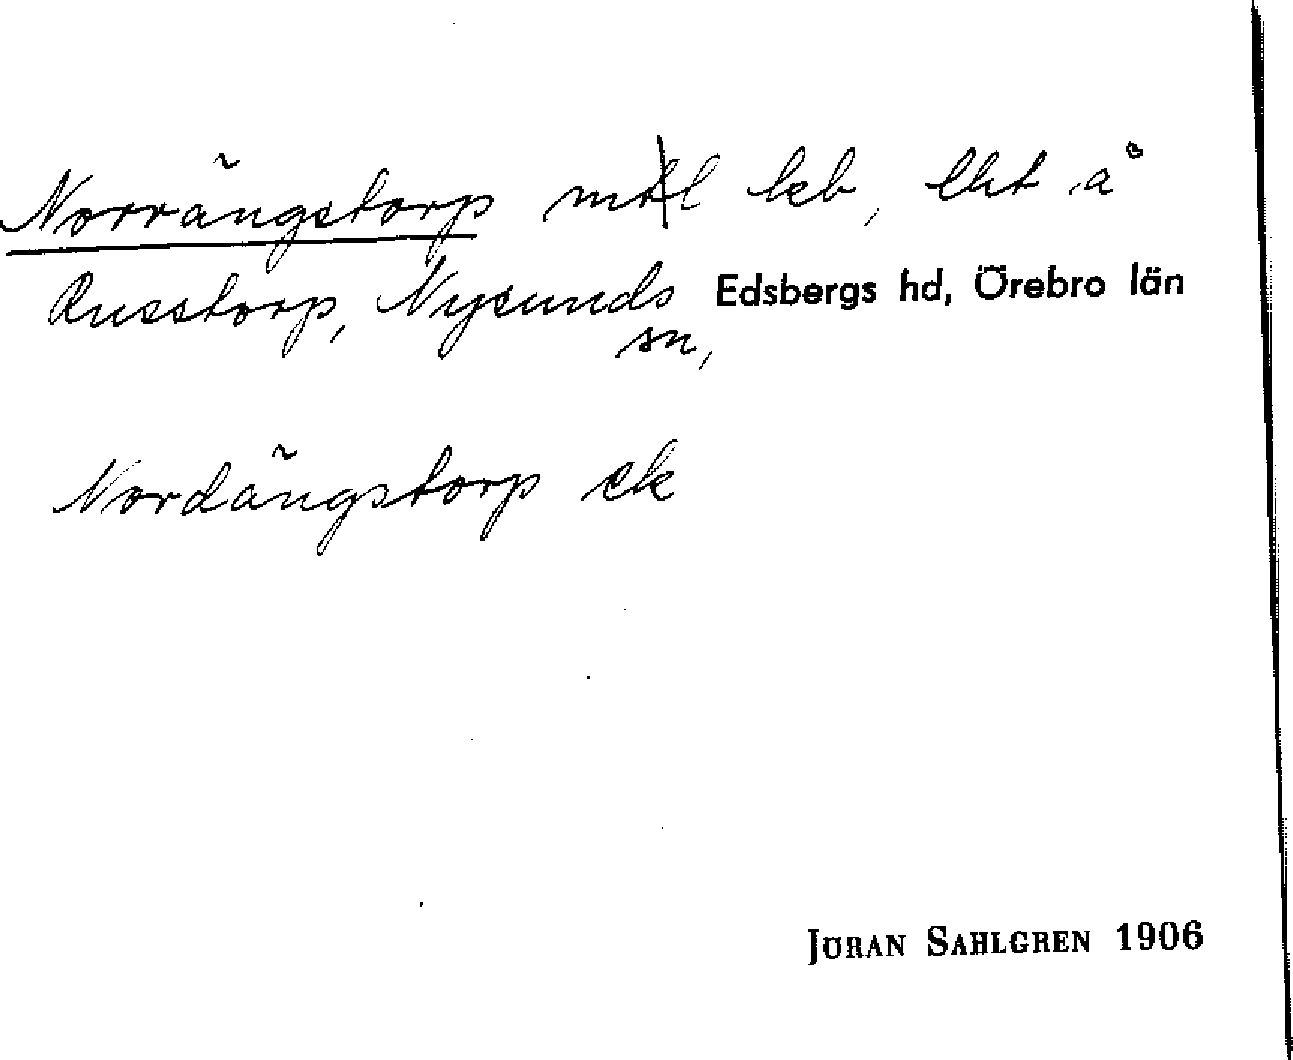 Norrängstorp mtl leb, lht å
Russtorp, Nysunds Edsbergs hd, Örebro län
sn,
Nordängstorp ek
JÖRAN SAHLGREN 1906